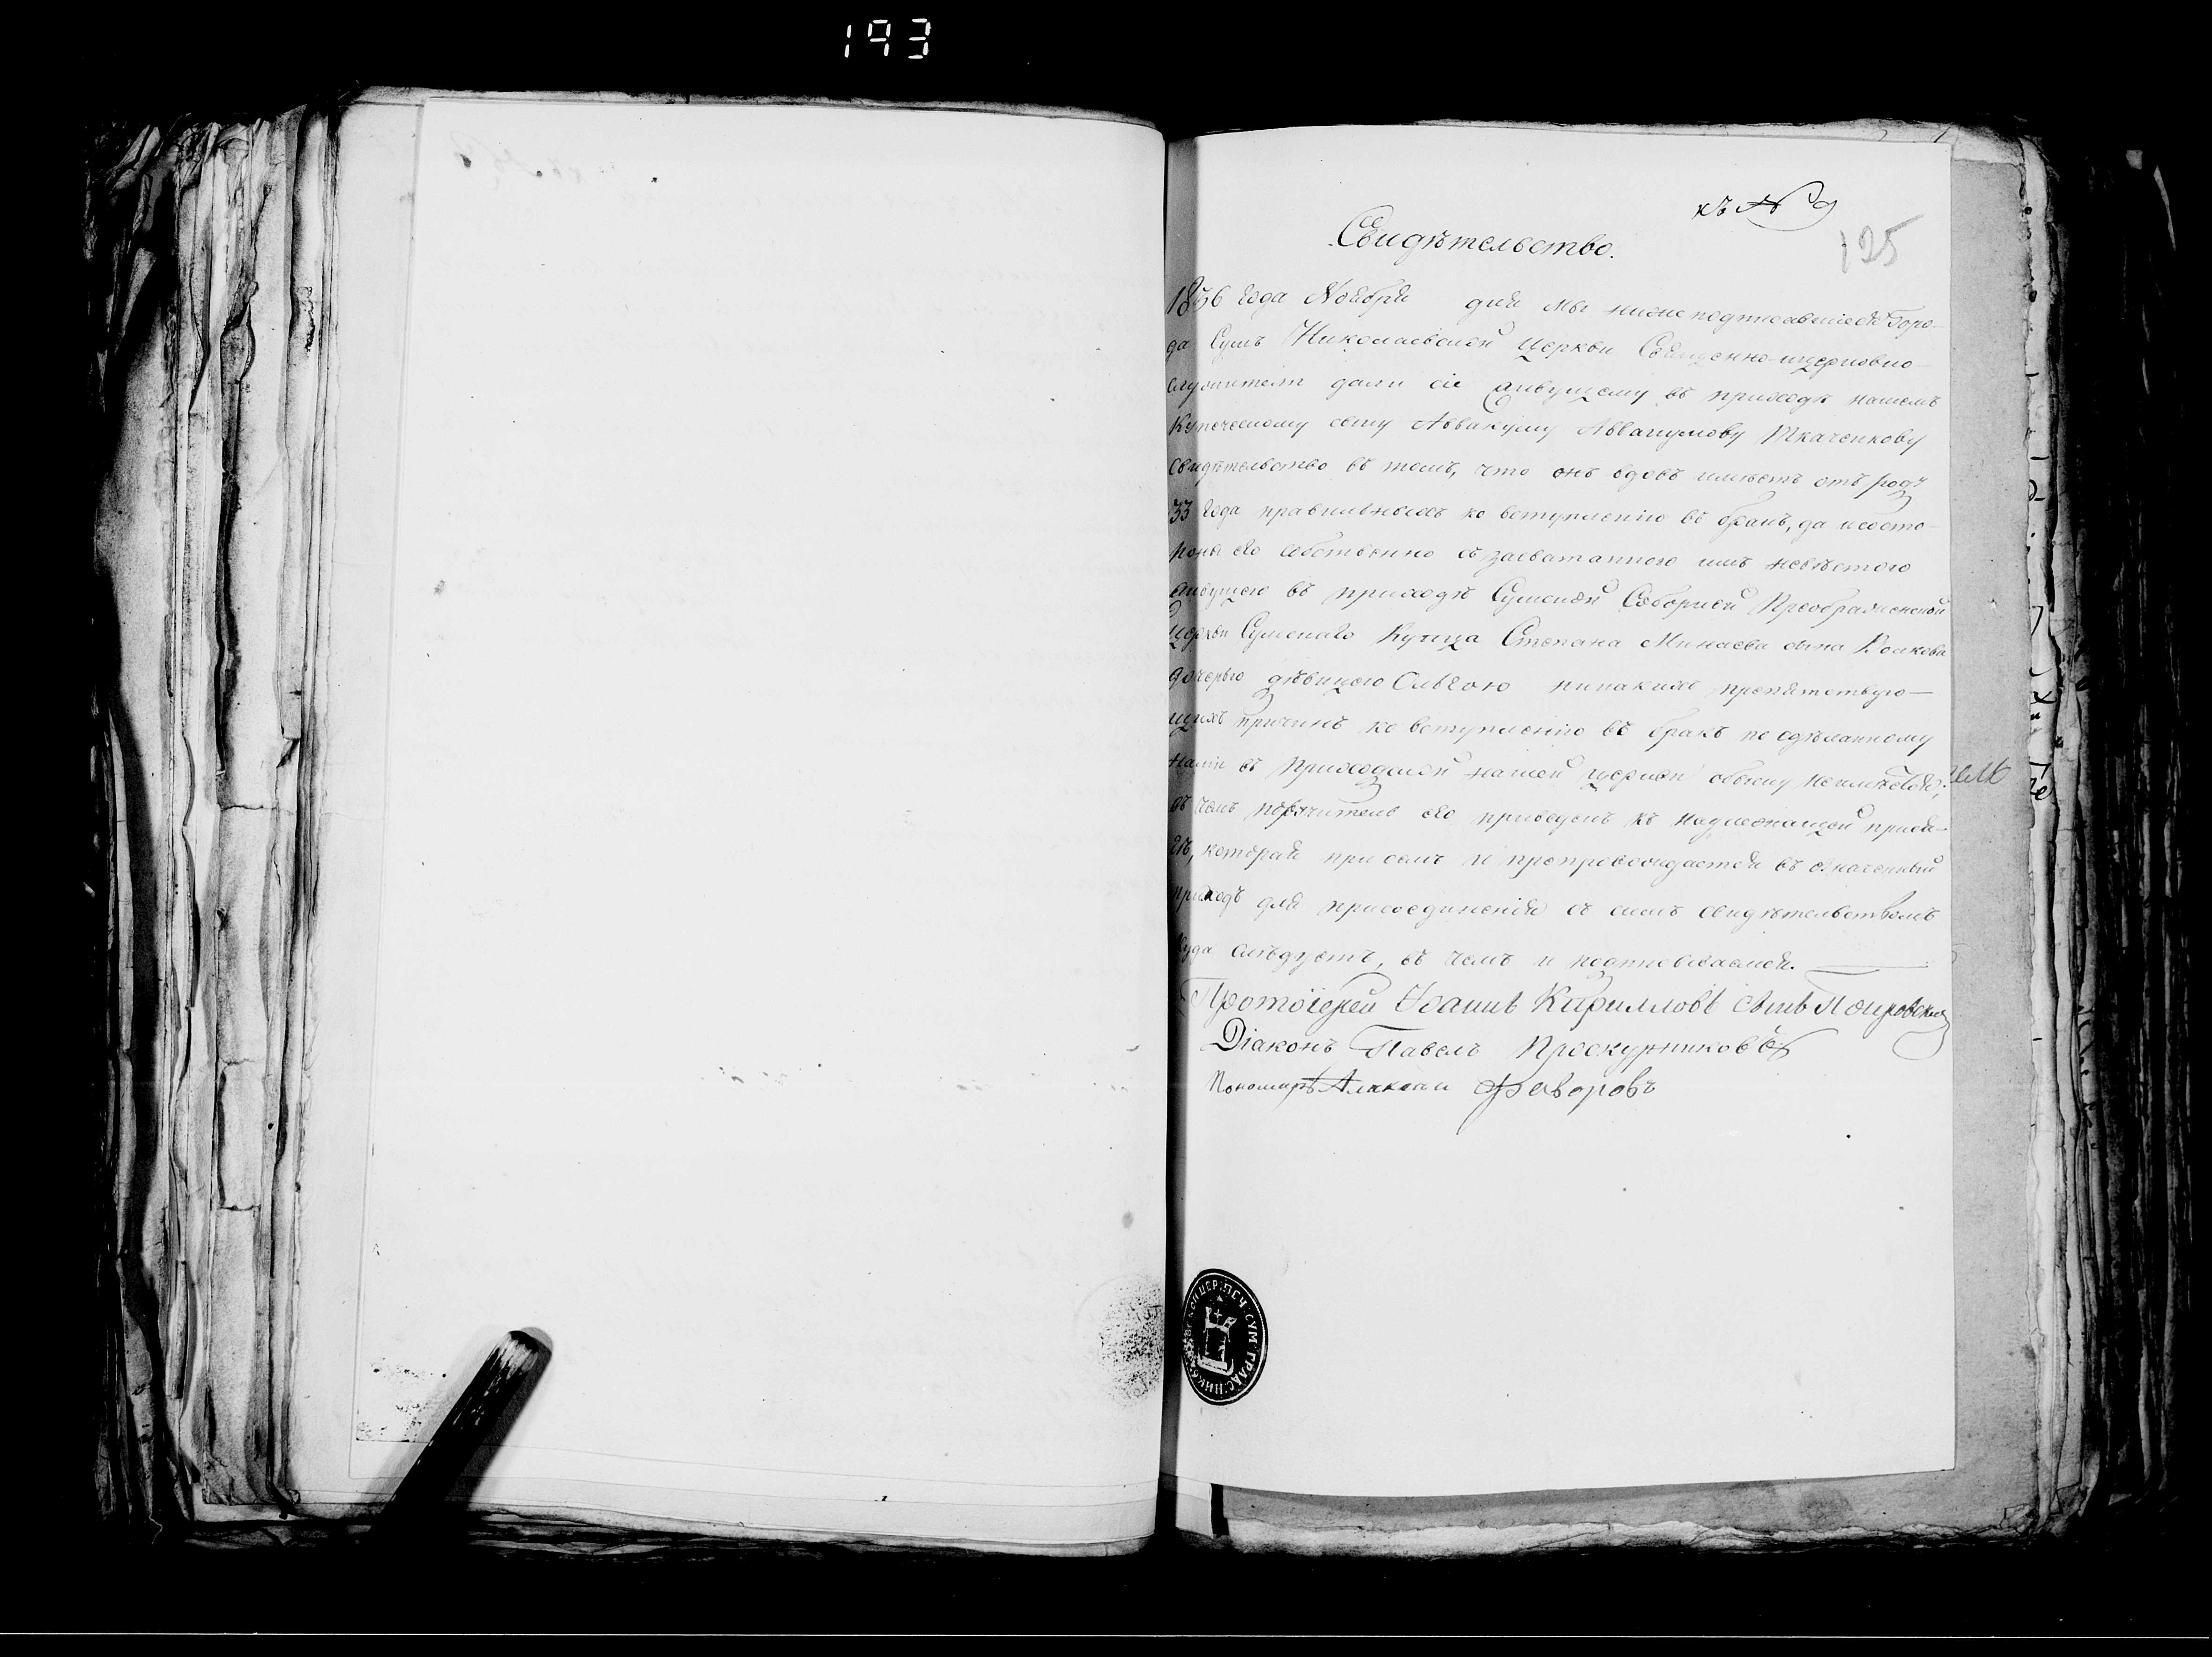 193
къ №9
125
Свидѣтельство.
1836 года Ноября дня мы нижеподписавшіеся Горо-
да Сумъ Николаевской Церкви Священно-церковно-
служители дали сіе живущему въ приходѣ нашемъ
Купеческому сыну Аввакуму Аввакумову Ткаченкову
свидѣтельство въ томъ, что онъ вдовъ имѣетъ отъ роду
33 года правильныхъ ко вступленію въ бракъ, да и со сто-
роны его собственно съ засватанною имъ невѣстою
живущею въ приходѣ Сумской Соборной Преображенской
Церкви Сумскаго Купца Степана Минаева сына
дочерью дѣвицею Ольгою никакихъ препятствую-
щихъ причинъ ко вступленію въ бракъ по сдѣланному
нами въ приходской нашей церкви обыску неимѣется;
въ чемъ поручители его приведены къ надлежащей прися-
гѣ, которая при семъ и препровождается въ означенный
приходъ для присоединенія съ симъ свидѣтельствомъ
куда слѣдуетъ, въ чемъ и подписуемся.
Протоіерей Іоаннъ Кирилловъ сынъ
Діаконъ Павелъ Проскурниковъ
Пономарь Алексѣй Фаворовъ